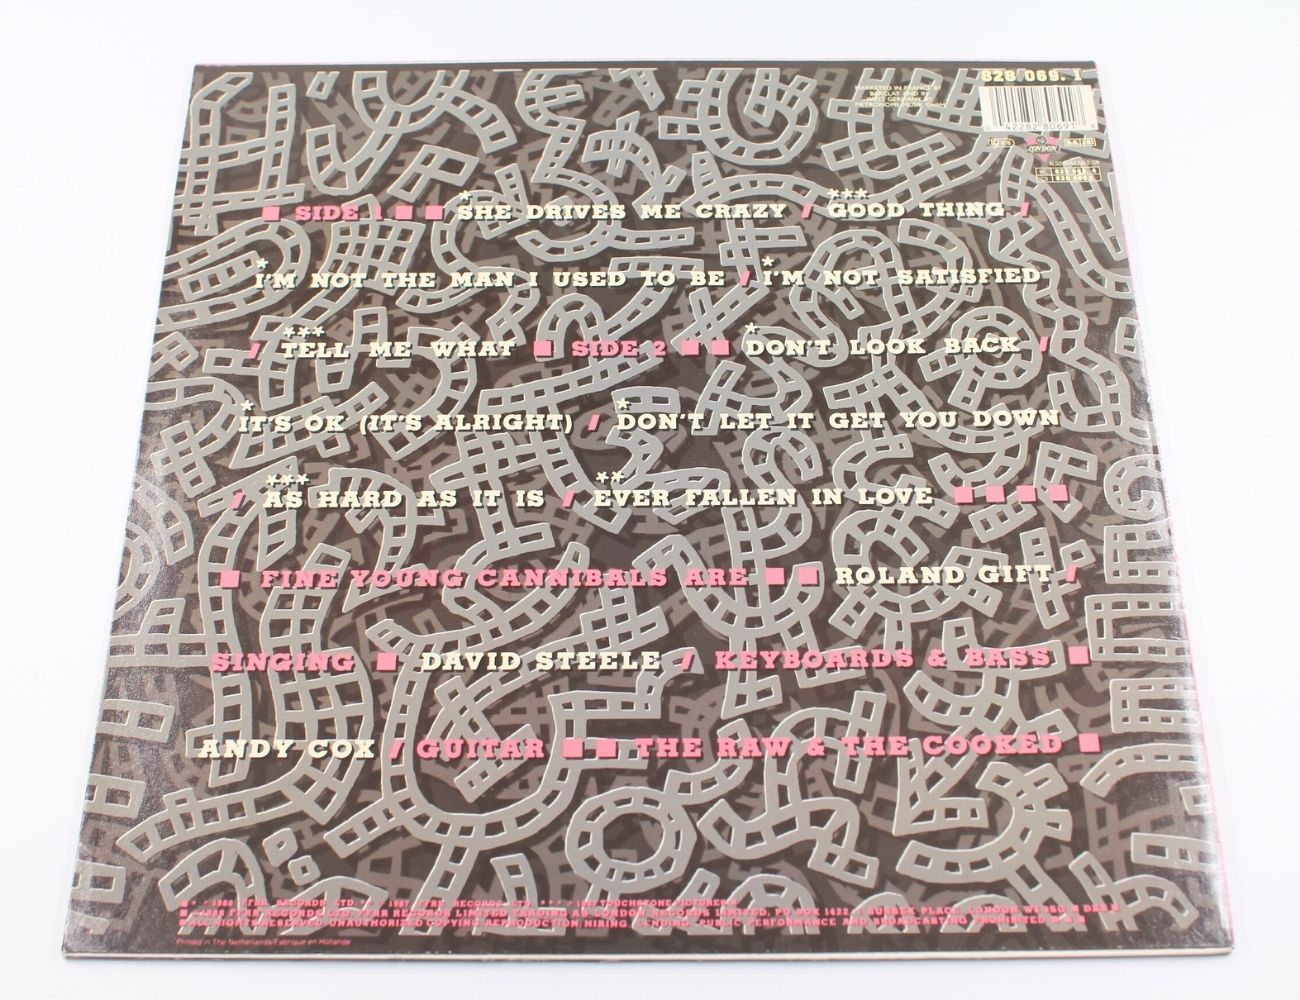 828 069. 1
MARKETED IN FRANCE BY
BARCLAY AND IN
WEST GERMANY BY
METRONOME MUSIK GmbH
42282 80691
LONDON
ALSO AVAILABLE ON
■ SIDE 1 ■ ■ *SHE DRIVES ME CRAZY / ***GOOD THING /
*I'M NOT THE MAN I USED TO BE / *I'M NOT SATISFIED
/ ***TELL ME WHAT ■ SIDE 2 ■ ■ *DON'T LOOK BACK /
*IT'S OK (IT'S ALRIGHT) / *DON'T LET IT GET YOU DOWN
/ ***AS HARD AS IT IS / **EVER FALLEN IN LOVE ■ ■ ■ ■
■ FINE YOUNG CANNIBALS ARE ■ ■ ROLAND GIFT /
SINGING ■ DAVID STEELE / KEYBOARDS & BASS ■
ANDY COX / GUITAR ■ ■ THE RAW & THE COOKED ■
RECORDS LTD. * * 1987 FFRR RECORDS LTD. * * * TOUCHSTONE PICTURES ■
■ FFRR RECORDS LTD. FFRR RECORDS LIMITED TRADING AS LONDON RECORDS LIMITED, PO BOX 1422, 1 SUSSEX PLACE, LONDON W6 9SG ■
■ ALL RIGHTS RESERVED. UNAUTHORIZED COPYING, REPRODUCTION, HIRING, LENDING, PUBLIC PERFORMANCE AND BROADCASTING PROHIBITED ■ ■ ■
Printed in The Netherlands/Fabriqué en Hollande